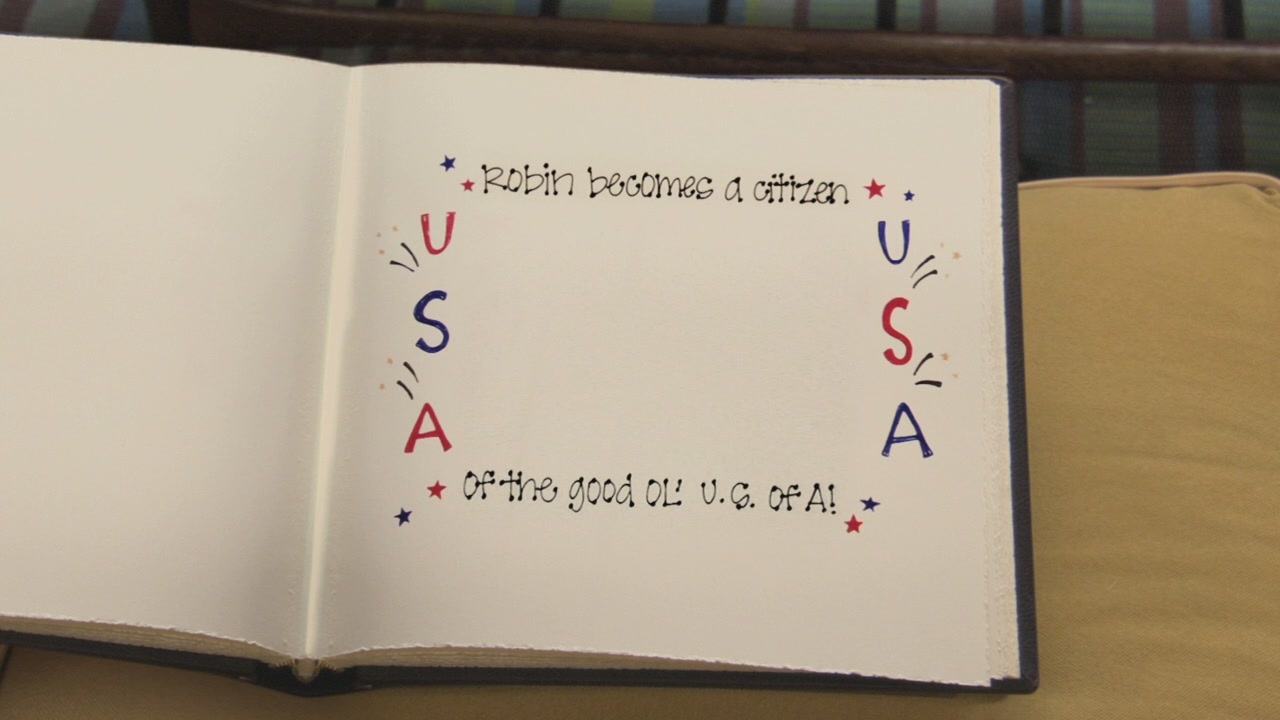 Robin becomes a citizen
U
S
A
U
S
A
Of the good OL' U.S. of A!